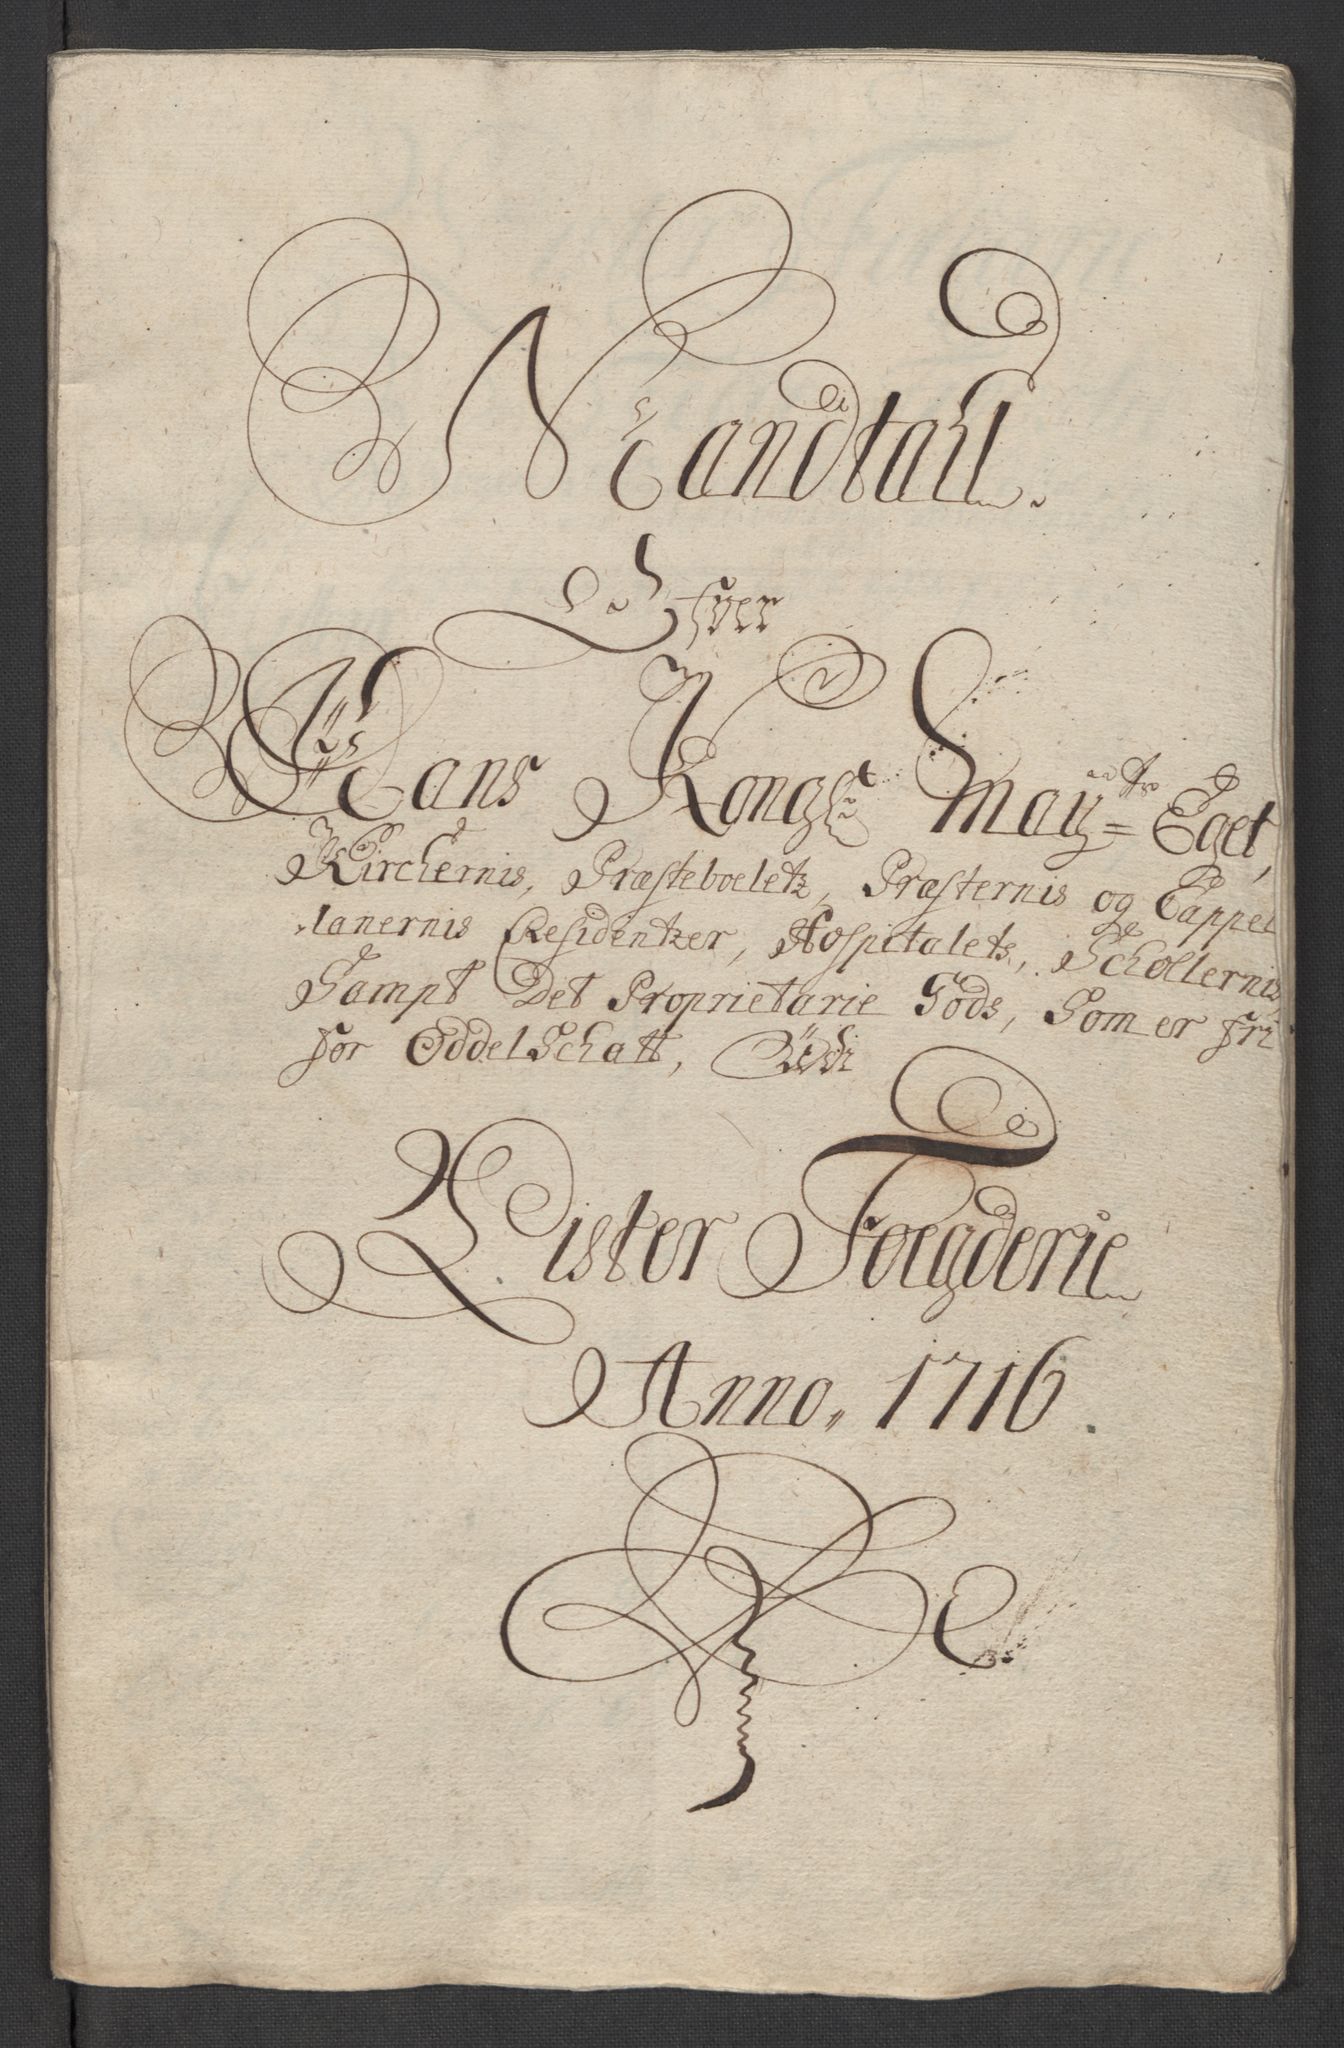 Mandtall.
Ofver
Hans Kongl: May=ts Eget,
Kirchernis, Præsteboeletz, Præsternis og Cappel
lanernis Residentzer, Hospitalets, Scholernis,
Sampt Det Proprietarie Gods, Som er fri
for OddelSchatt, Udi
Lister Foegderie
Anno, 1716.